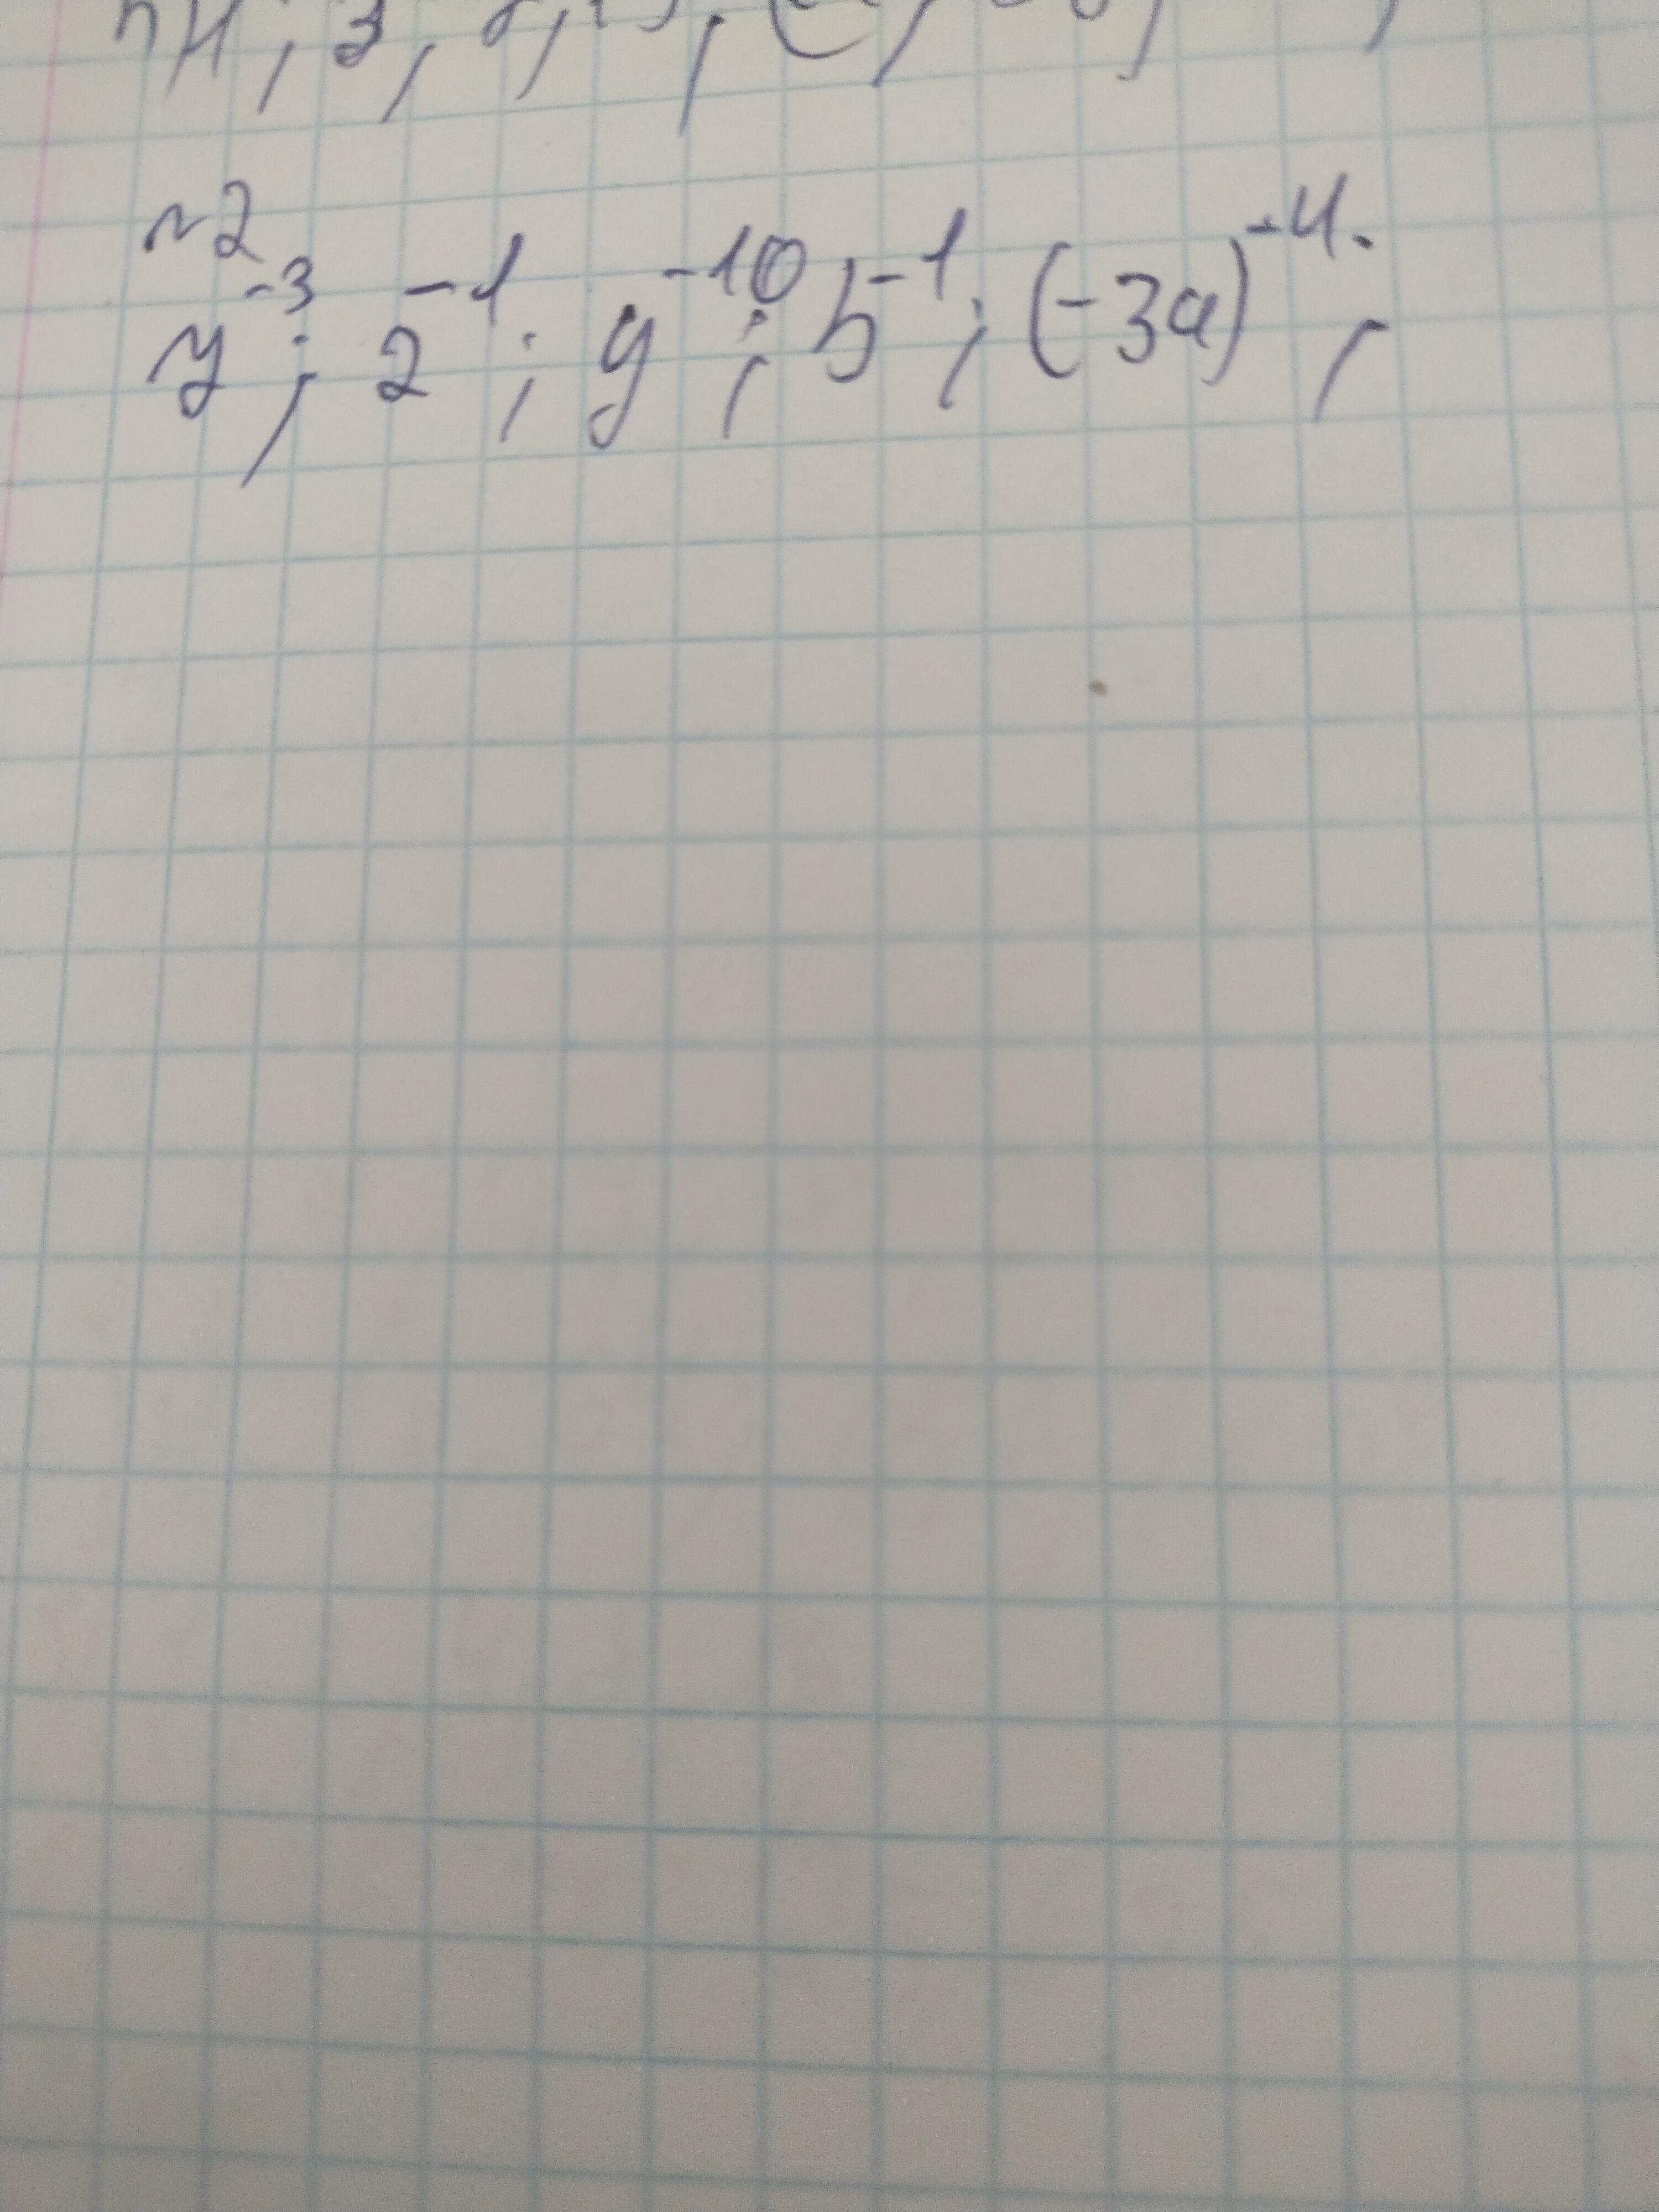 №2
y⁻³; 2⁻¹; y⁻¹⁰; b⁻¹; (-3a)⁻⁴;